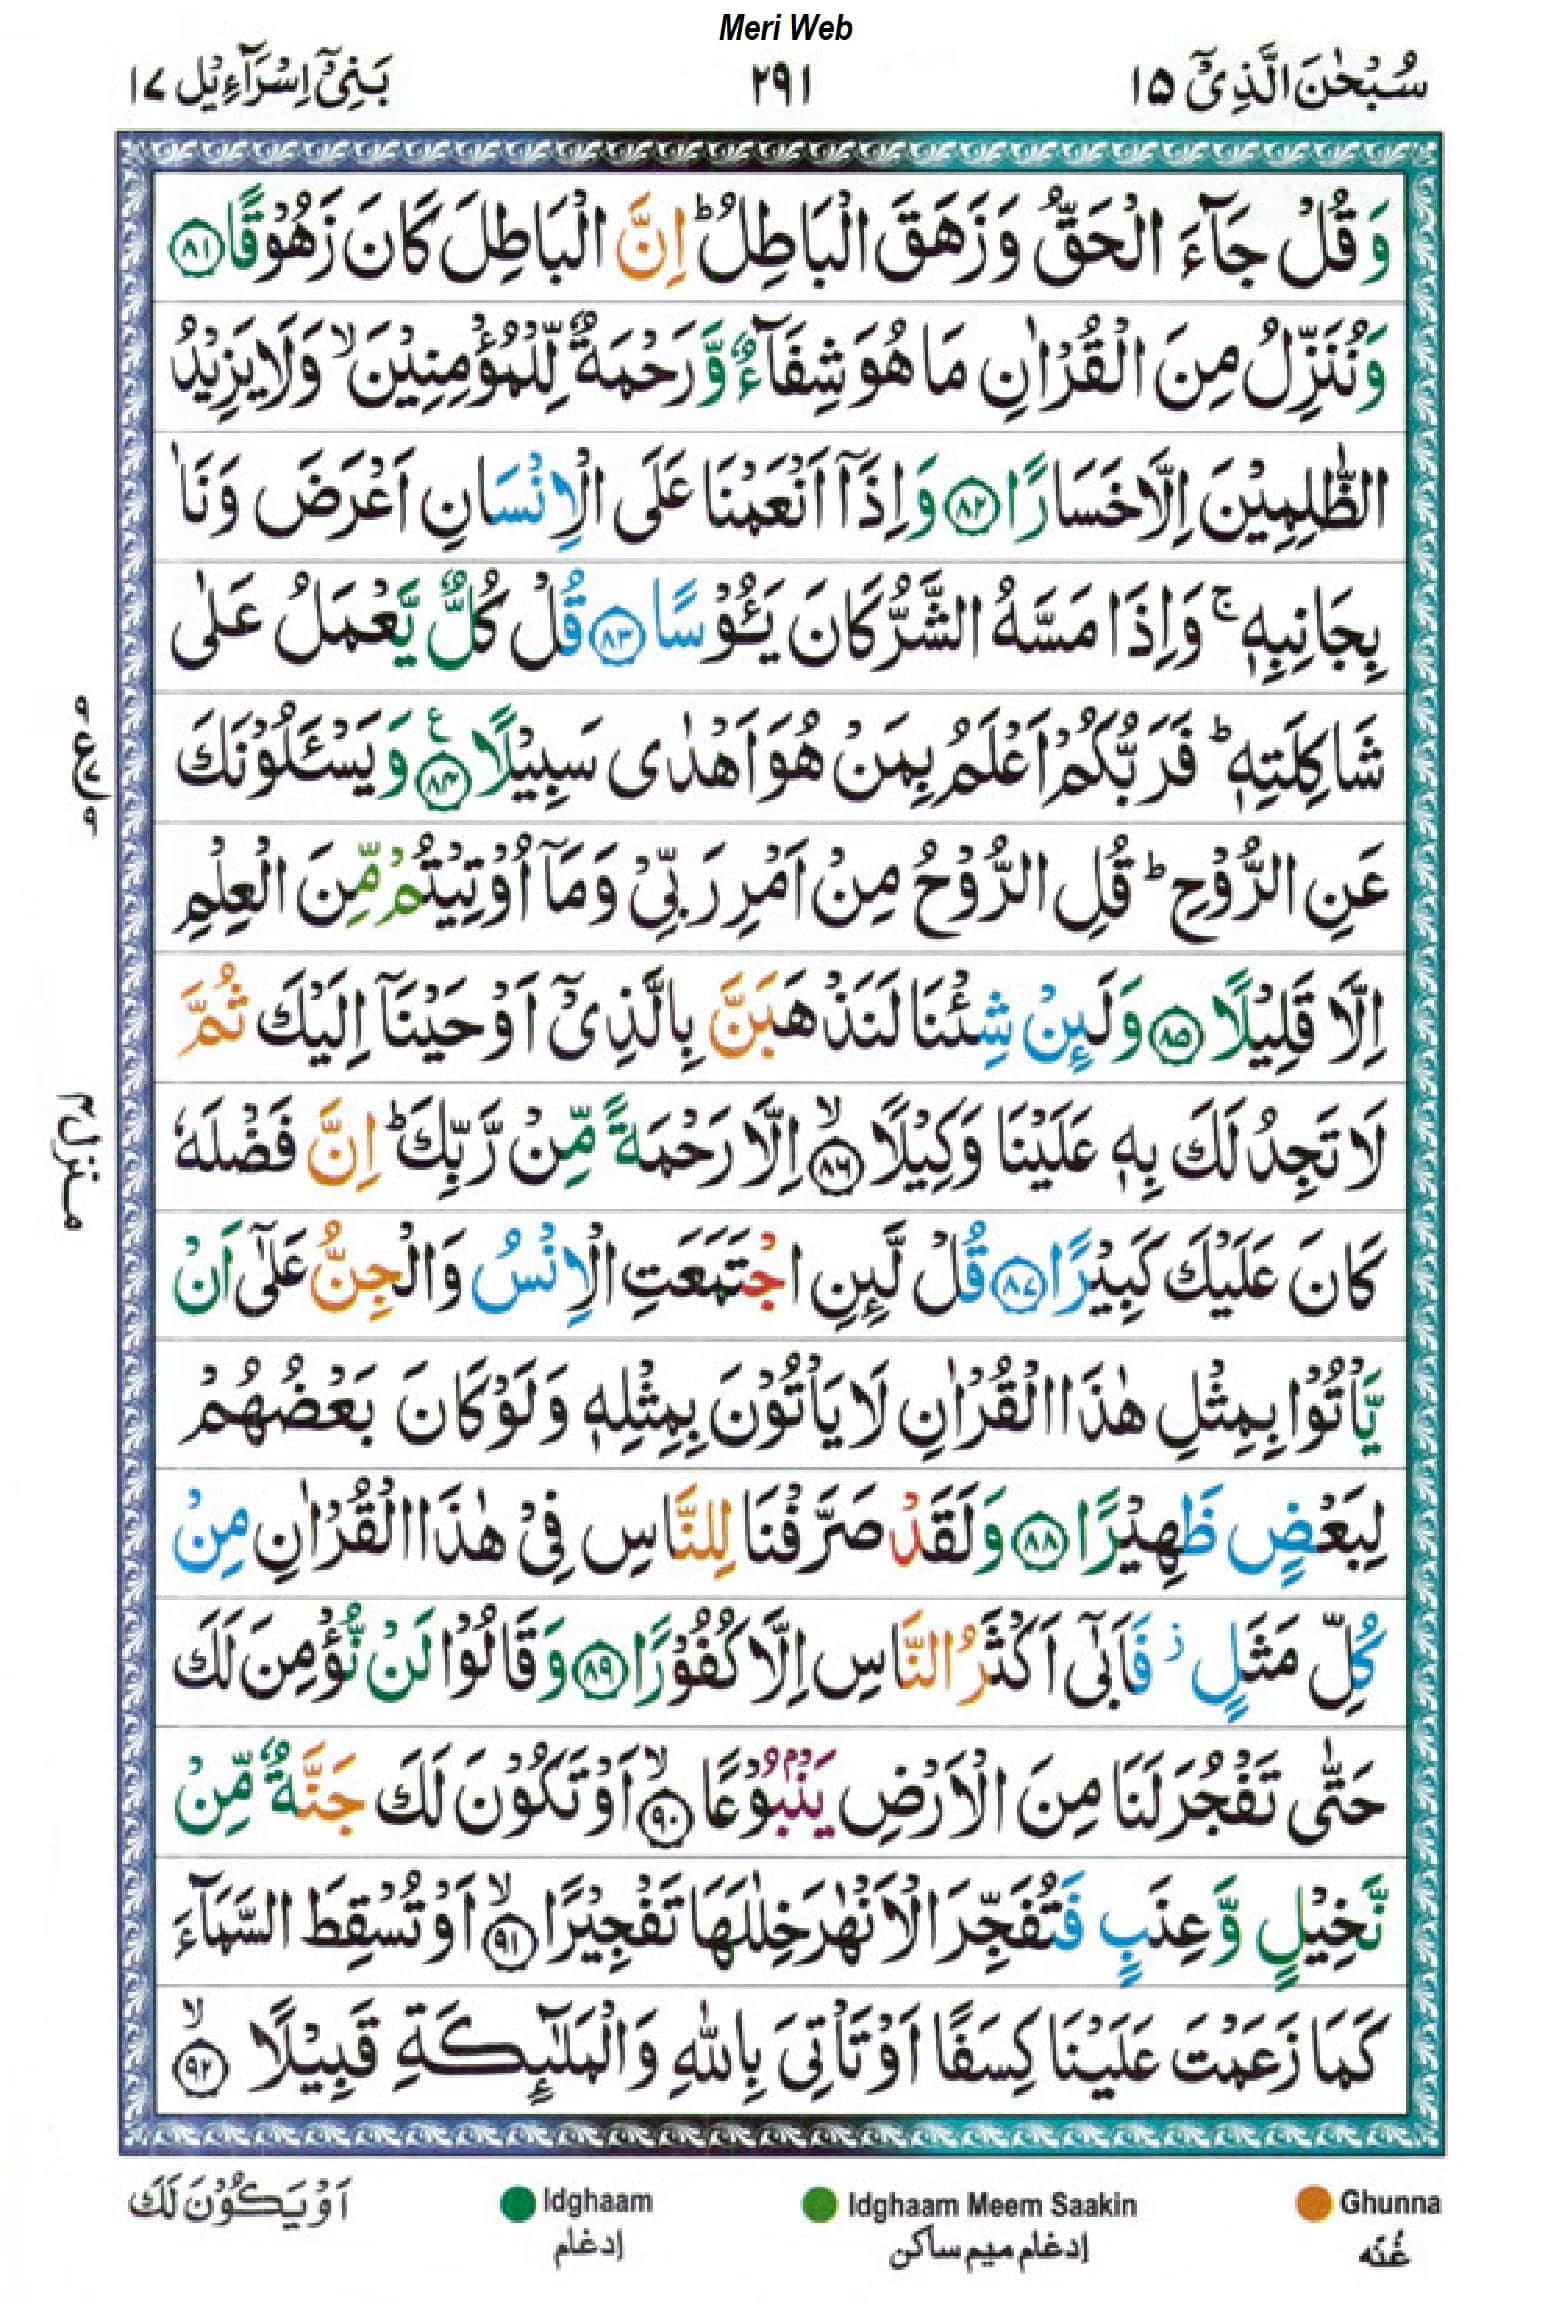 Meri Web
سُبْحٰنَ الَّذِيْٓ ١٥
٢٩١
بَنِيْٓ اِسْرَآءِيْل ١٧
وَقُلْ جَآءَ الْحَقُّ وَزَهَقَ الْبَاطِلُ ؕ اِنَّ الْبَاطِلَ كَانَ زَهُوْقًا ۝٨١
وَنُنَزِّلُ مِنَ الْقُرْاٰنِ مَا هُوَ شِفَآءٌ وَّرَحْمَةٌ لِّلْمُؤْمِنِيْنَ ۙ وَلَا يَزِيْدُ
الظّٰلِمِيْنَ اِلَّا خَسَارًا ۝٨٢ وَاِذَآ اَنْعَمْنَا عَلَى الْاِنْسَانِ اَعْرَضَ وَنَاٰ
بِجَانِبِهٖ ۚ وَاِذَا مَسَّهُ الشَّرُّ كَانَ يَـُٔوْسًا ۝٨٣ قُلْ كُلٌّ يَّعْمَلُ عَلٰى
شَاكِلَتِهٖ ؕ فَرَبُّكُمْ اَعْلَمُ بِمَنْ هُوَ اَهْدٰى سَبِيْلًا ۝٨٤ ع وَيَسْـَٔلُوْنَكَ
عَنِ الرُّوْحِ ؕ قُلِ الرُّوْحُ مِنْ اَمْرِ رَبِّيْ وَمَآ اُوْتِيْتُمْ مِّنَ الْعِلْمِ
اِلَّا قَلِيْلًا ۝٨٥ وَلَىِٕنْ شِئْنَا لَنَذْهَبَنَّ بِالَّذِيْٓ اَوْحَيْنَآ اِلَيْكَ ثُمَّ
لَا تَجِدُ لَكَ بِهٖ عَلَيْنَا وَكِيْلًا ۙ۝٨٦ اِلَّا رَحْمَةً مِّنْ رَّبِّكَ ؕ اِنَّ فَضْلَهٗ
كَانَ عَلَيْكَ كَبِيْرًا ۝٨٧ قُلْ لَّىِٕنِ اجْتَمَعَتِ الْاِنْسُ وَالْجِنُّ عَلٰٓى اَنْ
يَّاْتُوْا بِمِثْلِ هٰذَا الْقُرْاٰنِ لَا يَاْتُوْنَ بِمِثْلِهٖ وَلَوْ كَانَ بَعْضُهُمْ
لِبَعْضٍ ظَهِيْرًا ۝٨٨ وَلَقَدْ صَرَّفْنَا لِلنَّاسِ فِيْ هٰذَا الْقُرْاٰنِ مِنْ
كُلِّ مَثَلٍ ؗ فَاَبٰٓى اَكْثَرُ النَّاسِ اِلَّا كُفُوْرًا ۝٨٩ وَقَالُوْا لَنْ نُّؤْمِنَ لَكَ
حَتّٰى تَفْجُرَ لَنَا مِنَ الْاَرْضِ يَنْۢبُوْعًا ۙ۝٩٠ اَوْ تَكُوْنَ لَكَ جَنَّةٌ مِّنْ
نَّخِيْلٍ وَّعِنَبٍ فَتُفَجِّرَ الْاَنْهٰرَ خِلٰلَهَا تَفْجِيْرًا ۙ۝٩١ اَوْ تُسْقِطَ السَّمَآءَ
كَمَا زَعَمْتَ عَلَيْنَا كِسَفًا اَوْ تَاْتِيَ بِاللّٰهِ وَالْمَلٰٓىِٕكَةِ قَبِيْلًا ۙ۝٩٢
منزل ۴
اَوْ يَكُوْنَ لَكَ
Idghaam
إدغام
Idghaam Meem Saakin
إدغام ميم ساكن
Ghunna
غُنّه